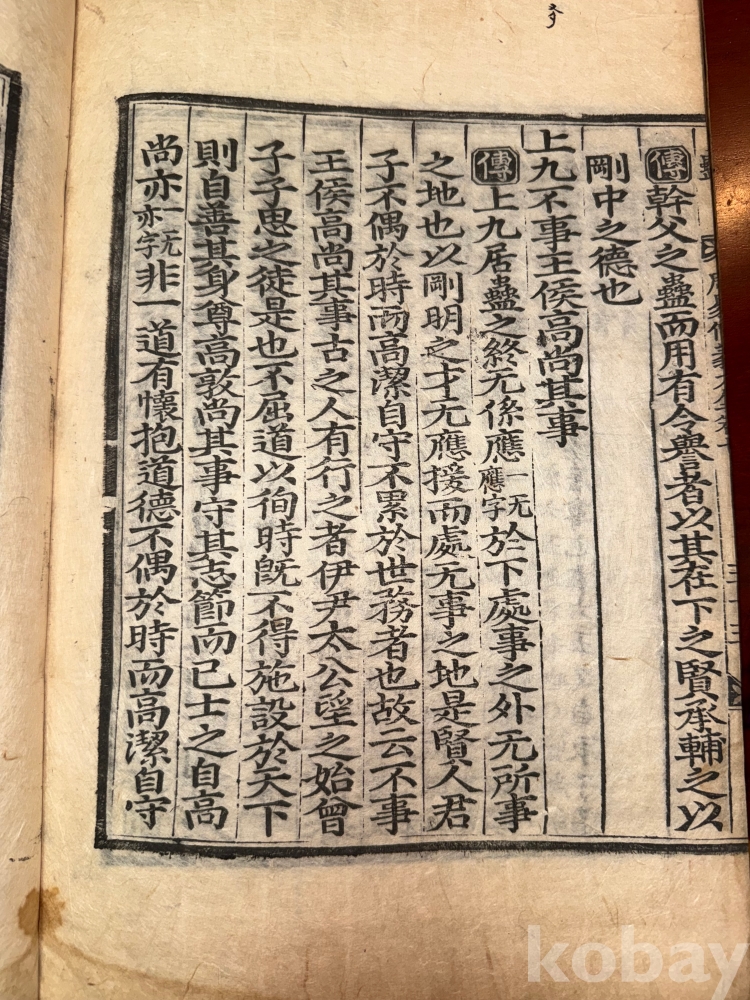 傳 幹父之蠱而用有令譽者以其在下之賢承輔之以
剛中之德也
上九不事王侯高尚其事
傳 上九居蠱之終无係應一无應字於下處事之外无所事
之地也以剛明之才无應援而處无事之地是賢人君
子不偶於時而高潔自守不累於世務者也故云不事
王侯高尚其事古之人有行之者伊尹太公望之始曾
子子思之徒是也不屈道以徇時旣不得施設於天下
則自善其身尊高敦尚其事守其志節而已士之自高
尚亦一无亦字非一道有懷抱道德不偶於時而高潔自守
kobay